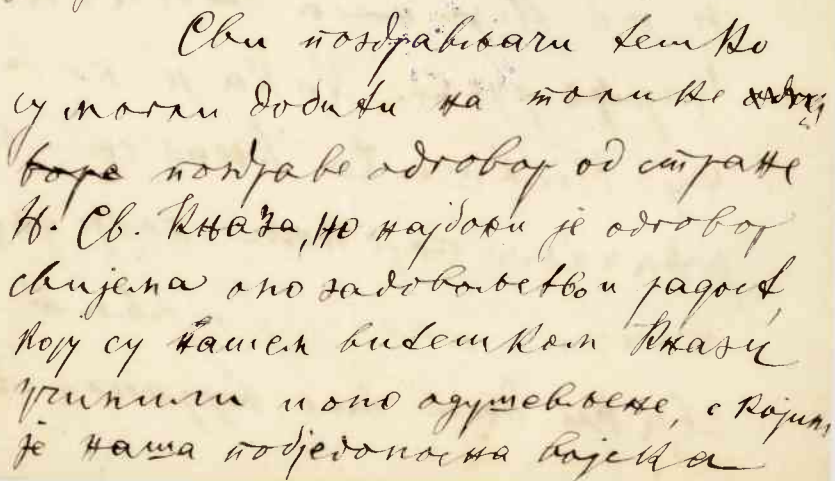 Сви поздрављачи тешко
су могли добити на толике одго
воре поздраве одговор од стране
Њ. Св. Књаза, но најбољи је одговор
свијема оно задовољство и радост,
коју су нашем витешком Књазу
учинили и оно одушевљење, с којим
је наша побједоносна војска